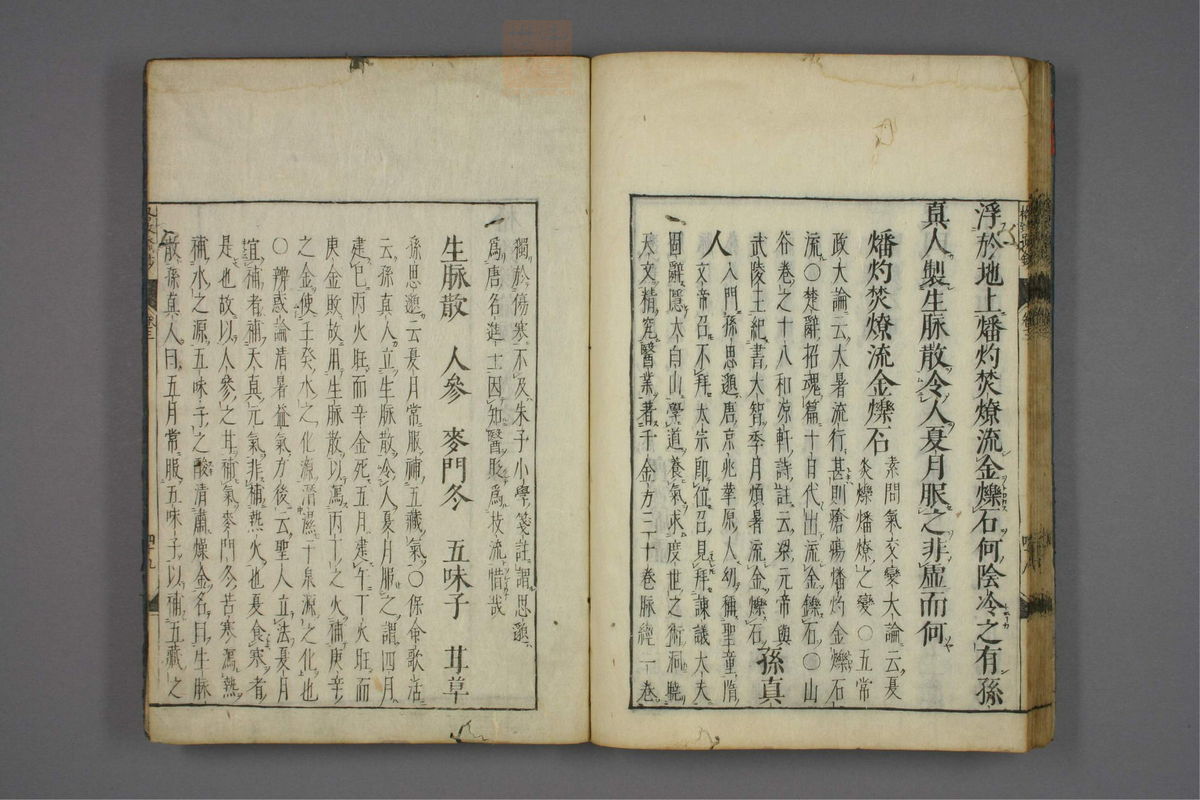 浮於地上燔灼焚燎流金爍石何陰冷之有孫
真人製生脉散令人夏月服之非虛而何
燔灼焚燎流金爍石 素問氣交變大論云夏炎爍燔燎之變○五常
政大論云大暑流行甚則瘡瘍燔灼金爍石
流○楚辭招魂篇十日代出流金鑠石○山
谷卷之十八和涼軒詩註云梁元帝與
武陵王紀書大智季月煩暑流金爍石 孫真
人 入門孫思邈唐京兆華原人幼稱聖童隋
文帝召不拜太宗即位召見拜諫議大夫
固辭隱太白山學道養氣求度世之術洞曉
天文精究醫業著千金方三十卷脉經一卷
獨於傷寒不及朱子小學箋註謂思邈
爲唐名進士因知醫貶爲技流惜哉
生脉散 人參 麥門冬 五味子 甘草
孫思邈云夏月常服補五藏氣○保命歌活
云孫真人立生脉散令人夏月服之謂四月
建巳丙火旺而辛金死五月建午丁火旺而
庚金敗故用生脉散以瀉丙丁之火補庚辛
之金使壬癸水之化源潛滋于泉源之化也
○辨惑論清暑益氣方後云聖人立法夏月
宜補者補天真元氣非補熱火也夏食寒者
是也故以人參之甘補氣麥門冬苦寒瀉熱
補水之源五味子之酸清肅燥金名曰生脉
散孫真人曰五月常服五味子以補五藏之
四十九